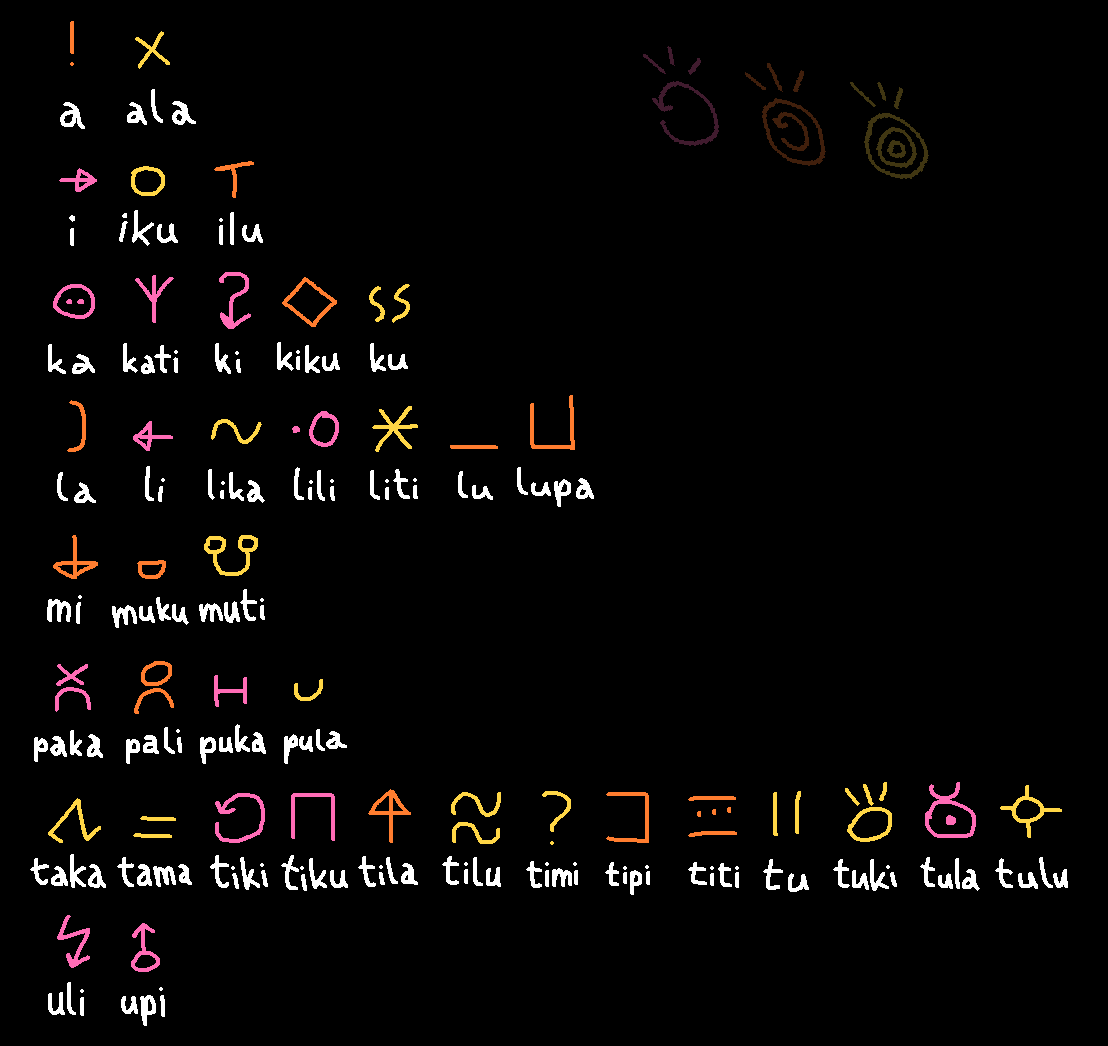 a ala
i iku ilu
ka kati ki kiku ku
la li lika lili liti lu lupa
mi muku muti
paka pali puka pula
taka tama tiki tiku tila tilu timi tipi titi tu tuki tula tulu
uli upi